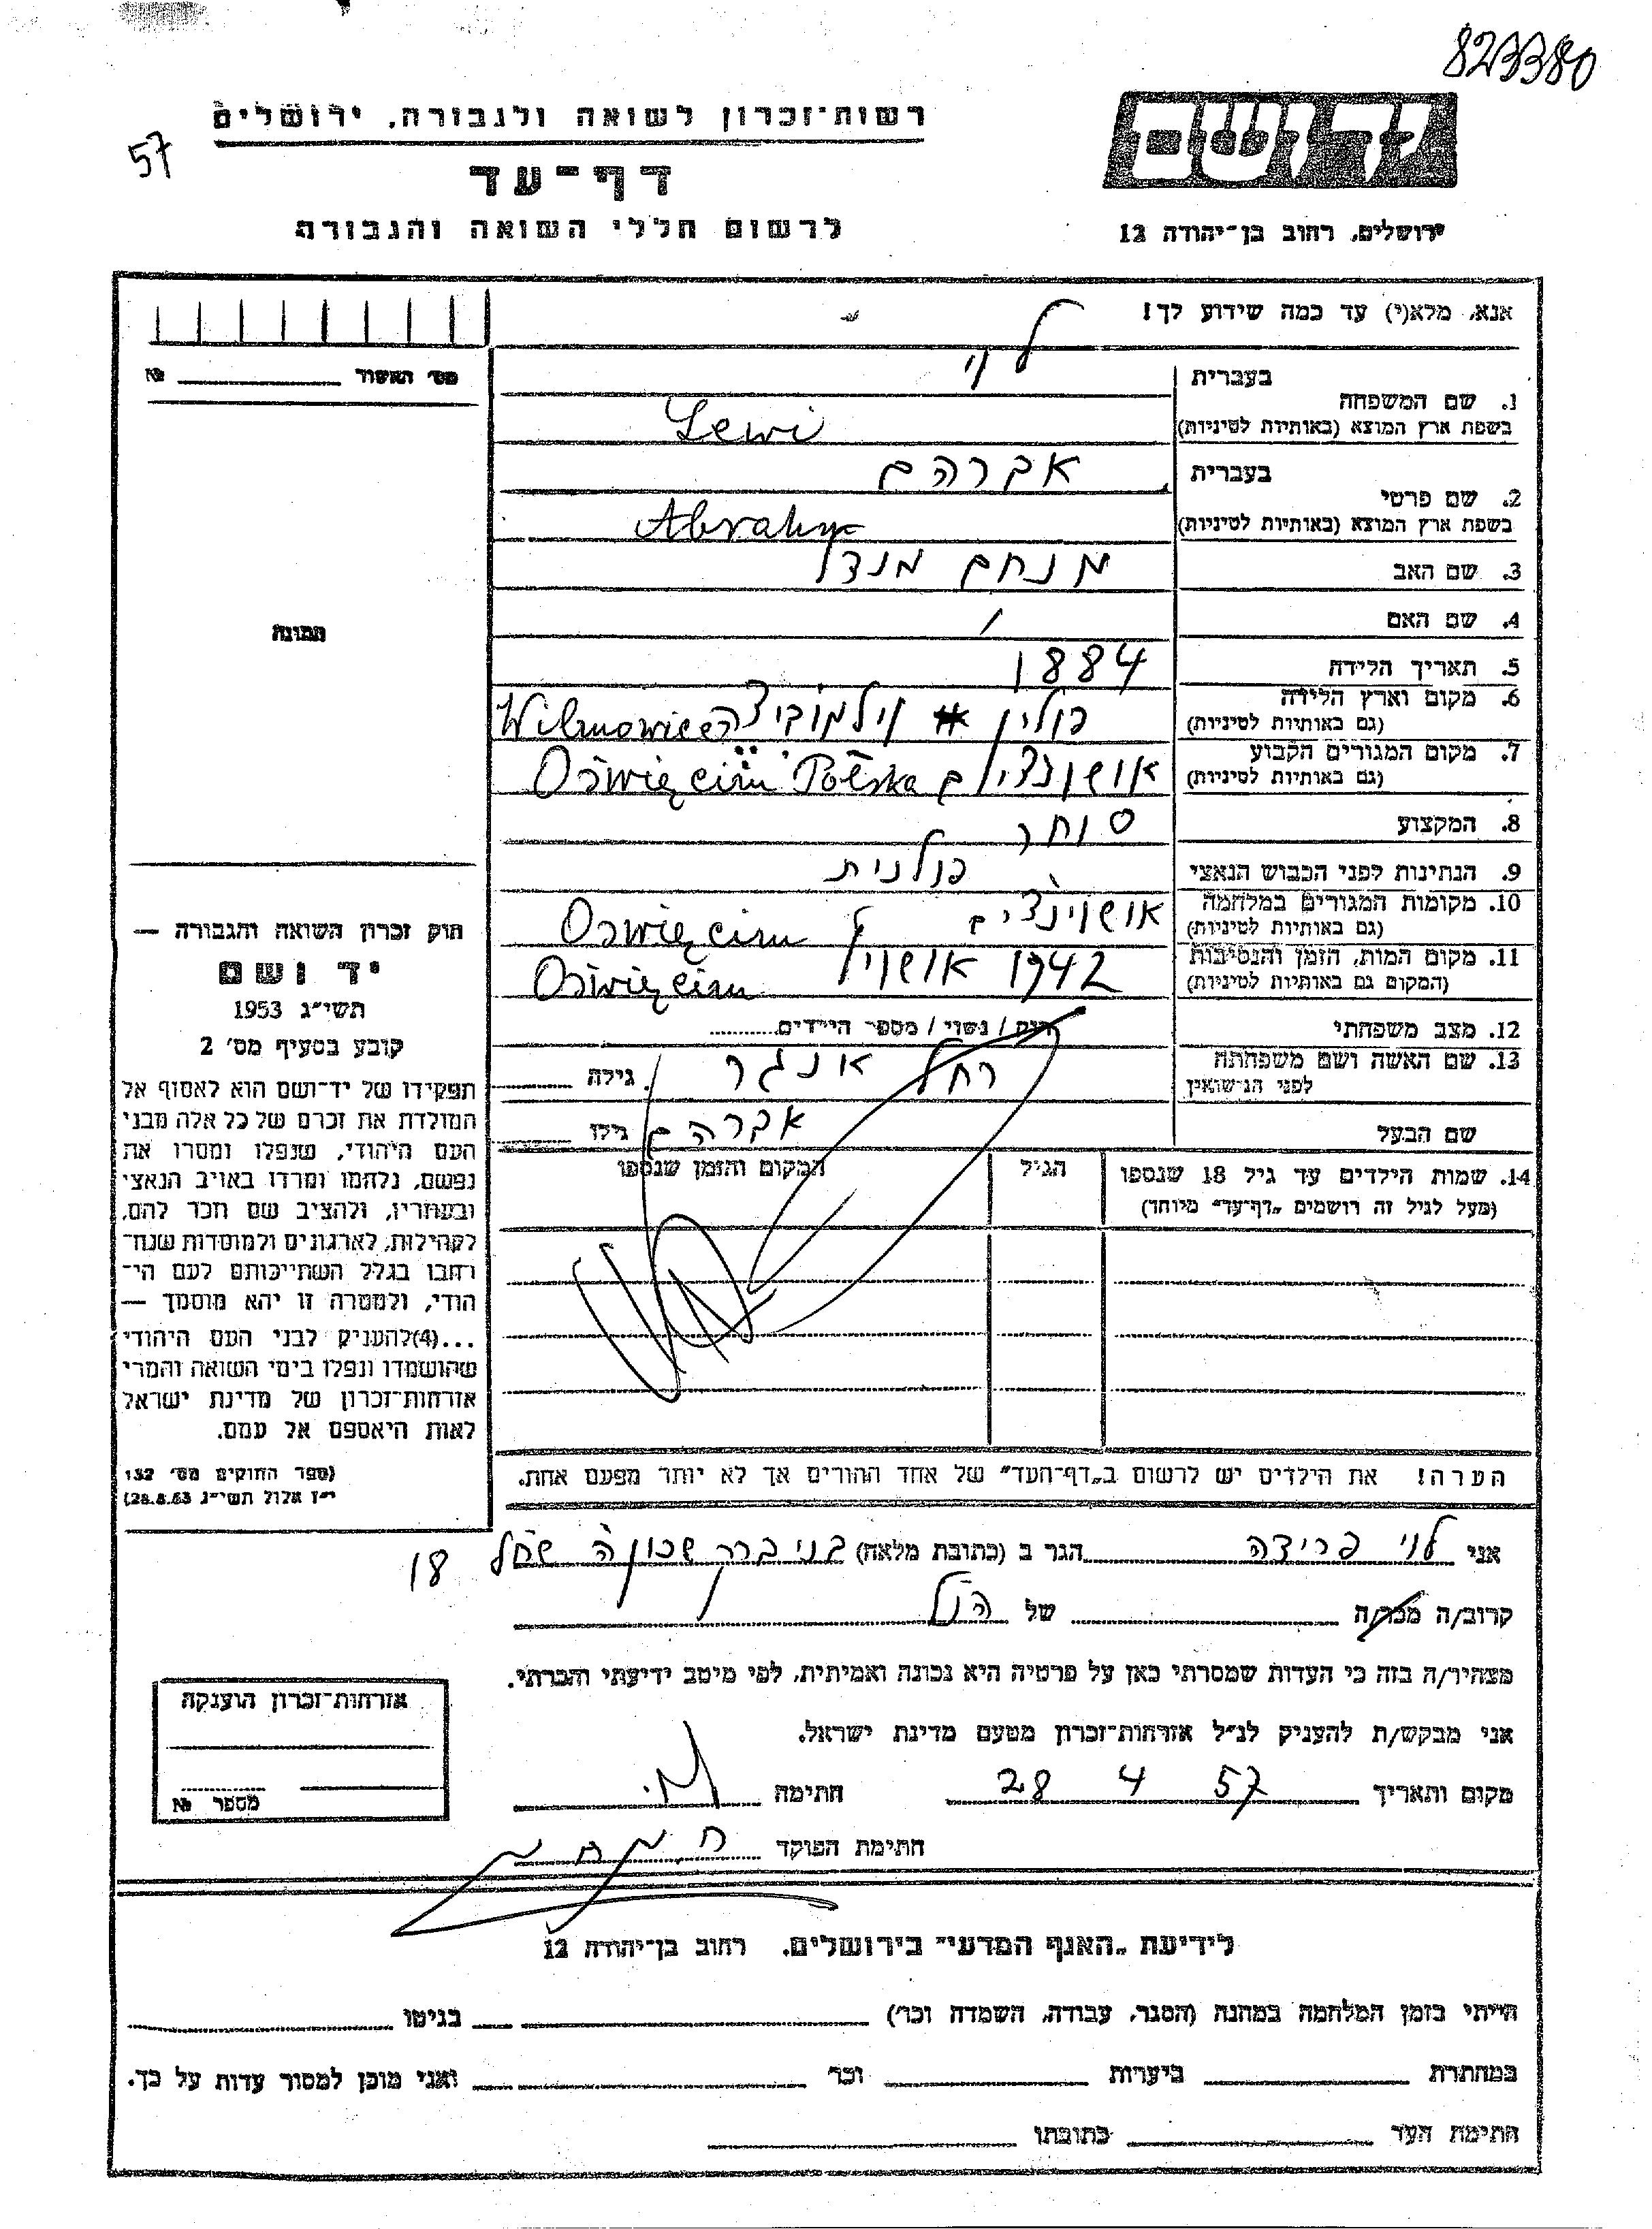 823380
57
רשות־זכרון לשואה ולגבורה, ירושלים
דף־עד
לרשום חללי השואה והגבורה
ירושלים, רחוב בן־יהודה 12
אנא, מלא(י) עד כמה שידוע לך!
מס׳ האשור №
תמונה
חוק זכרון השואה והגבורה —
יד ושם
תשי״ג 1953
קובע בסעיף מס׳ 2
תפקידו של יד־ושם הוא לאסוף אל
המולדת את זכרם של כל אלה מבני
העם היהודי, שנפלו ומסרו את
נפשם, נלחמו ומרדו באויב הנאצי
ובעוזריו, ולהציב שם וזכר להם,
לקהילות, לארגונים ולמוסדות שנח־
רבו בגלל השתייכותם לעם הי־
הודי, ולמטרה זו יהא מוסמך —
...(4)להעניק לבני העם היהודי
שהושמדו ונפלו בימי השואה והמרי
אזרחות־זכרון של מדינת ישראל
לאות היאספם אל עמם.
(ספר החוקים מס׳ 132
י״ז אלול תשי״ג 28.8.53)
בעברית לוי
1. שם המשפחה
בשפת ארץ המוצא (באותיות לטיניות) Lewi
בעברית אברהם
2. שם פרטי
בשפת ארץ המוצא (באותיות לטיניות)
3. שם האב מנחם מנדל
4. שם האם /
5. תאריך הלידה 1884
6. מקום וארץ הלידה פולין
(גם באותיות לטיניות) Wilamowice
7. מקום המגורים הקבוע
(גם באותיות לטיניות) Oświęcim Polska
8. המקצוע סוחר
9. הנתינות לפני הכבוש הנאצי פולנית
10. מקומות המגורים במלחמה
(גם באותיות לטיניות) Oświęcim
11. מקום המות, הזמן והנסיבות 1942
(המקום גם באותיות לטיניות) Oświęcim
12. מצב משפחתי רווק / נשוי / מספר הילדים
13. שם האשה ושם משפחתה רחל אנגר גילה
לפני הנישואין
שם הבעל אברהם גילו
14. שמות הילדים עד גיל 18 שנספו הגיל המקום והזמן שנספו
(מעל לגיל זה רושמים „דף־עד״ מיוחד)
הערה! את הילדים יש לרשום ב„דף־העד״ של אחד ההורים אך לא יותר מפעם אחת.
אני לוי פרידה הגר ב (כתובת מלאה) בני ברק שכונה 18
קרוב/ה מכר/ה של הנ״ל
מצהיר/ה בזה כי העדות שמסרתי כאן על פרטיה היא נכונה ואמיתית, לפי מיטב ידיעתי והכרתי.
אני מבקש/ת להעניק לנ״ל אזרחות־זכרון מטעם מדינת ישראל.
מקום ותאריך 28 4 57 חתימה
חתימת הפוקד
אזרחות־זכרון הוענקה
מספר №
לידיעת „האגף המדעי״ בירושלים. רחוב בן־יהודה 12
הייתי בזמן המלחמה במחנה (הסגר, עבודה, השמדה וכו׳) בגיטו
במחתרת ביערות וכו׳ ואני מוכן למסור עדות על כך.
חתימת העד כתובתו